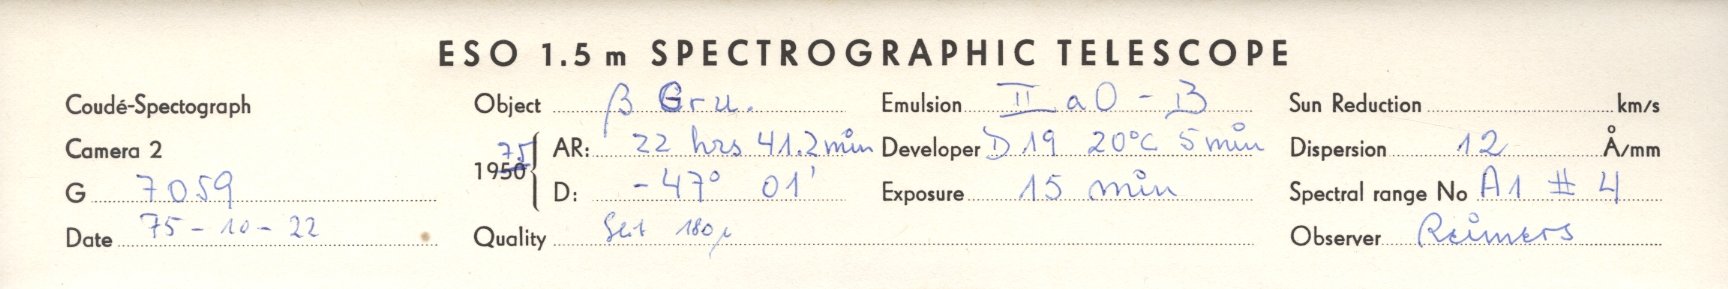 ESO 1.5 m SPECTROGRAPHIC TELESCOPE
Coudé-Spectograph Object β Gru. Emulsion II a O - B Sun Reduction km/s
Camera 2 1950 75 AR: 22 hrs 41.2 min Developer D 19 20°C 5 min Dispersion 12 Å/mm
G 7059 D: -47° 01' Exposure 15 min Spectral range No A1 # 4
Date 75-10-22 Quality 180μ Observer Reimers